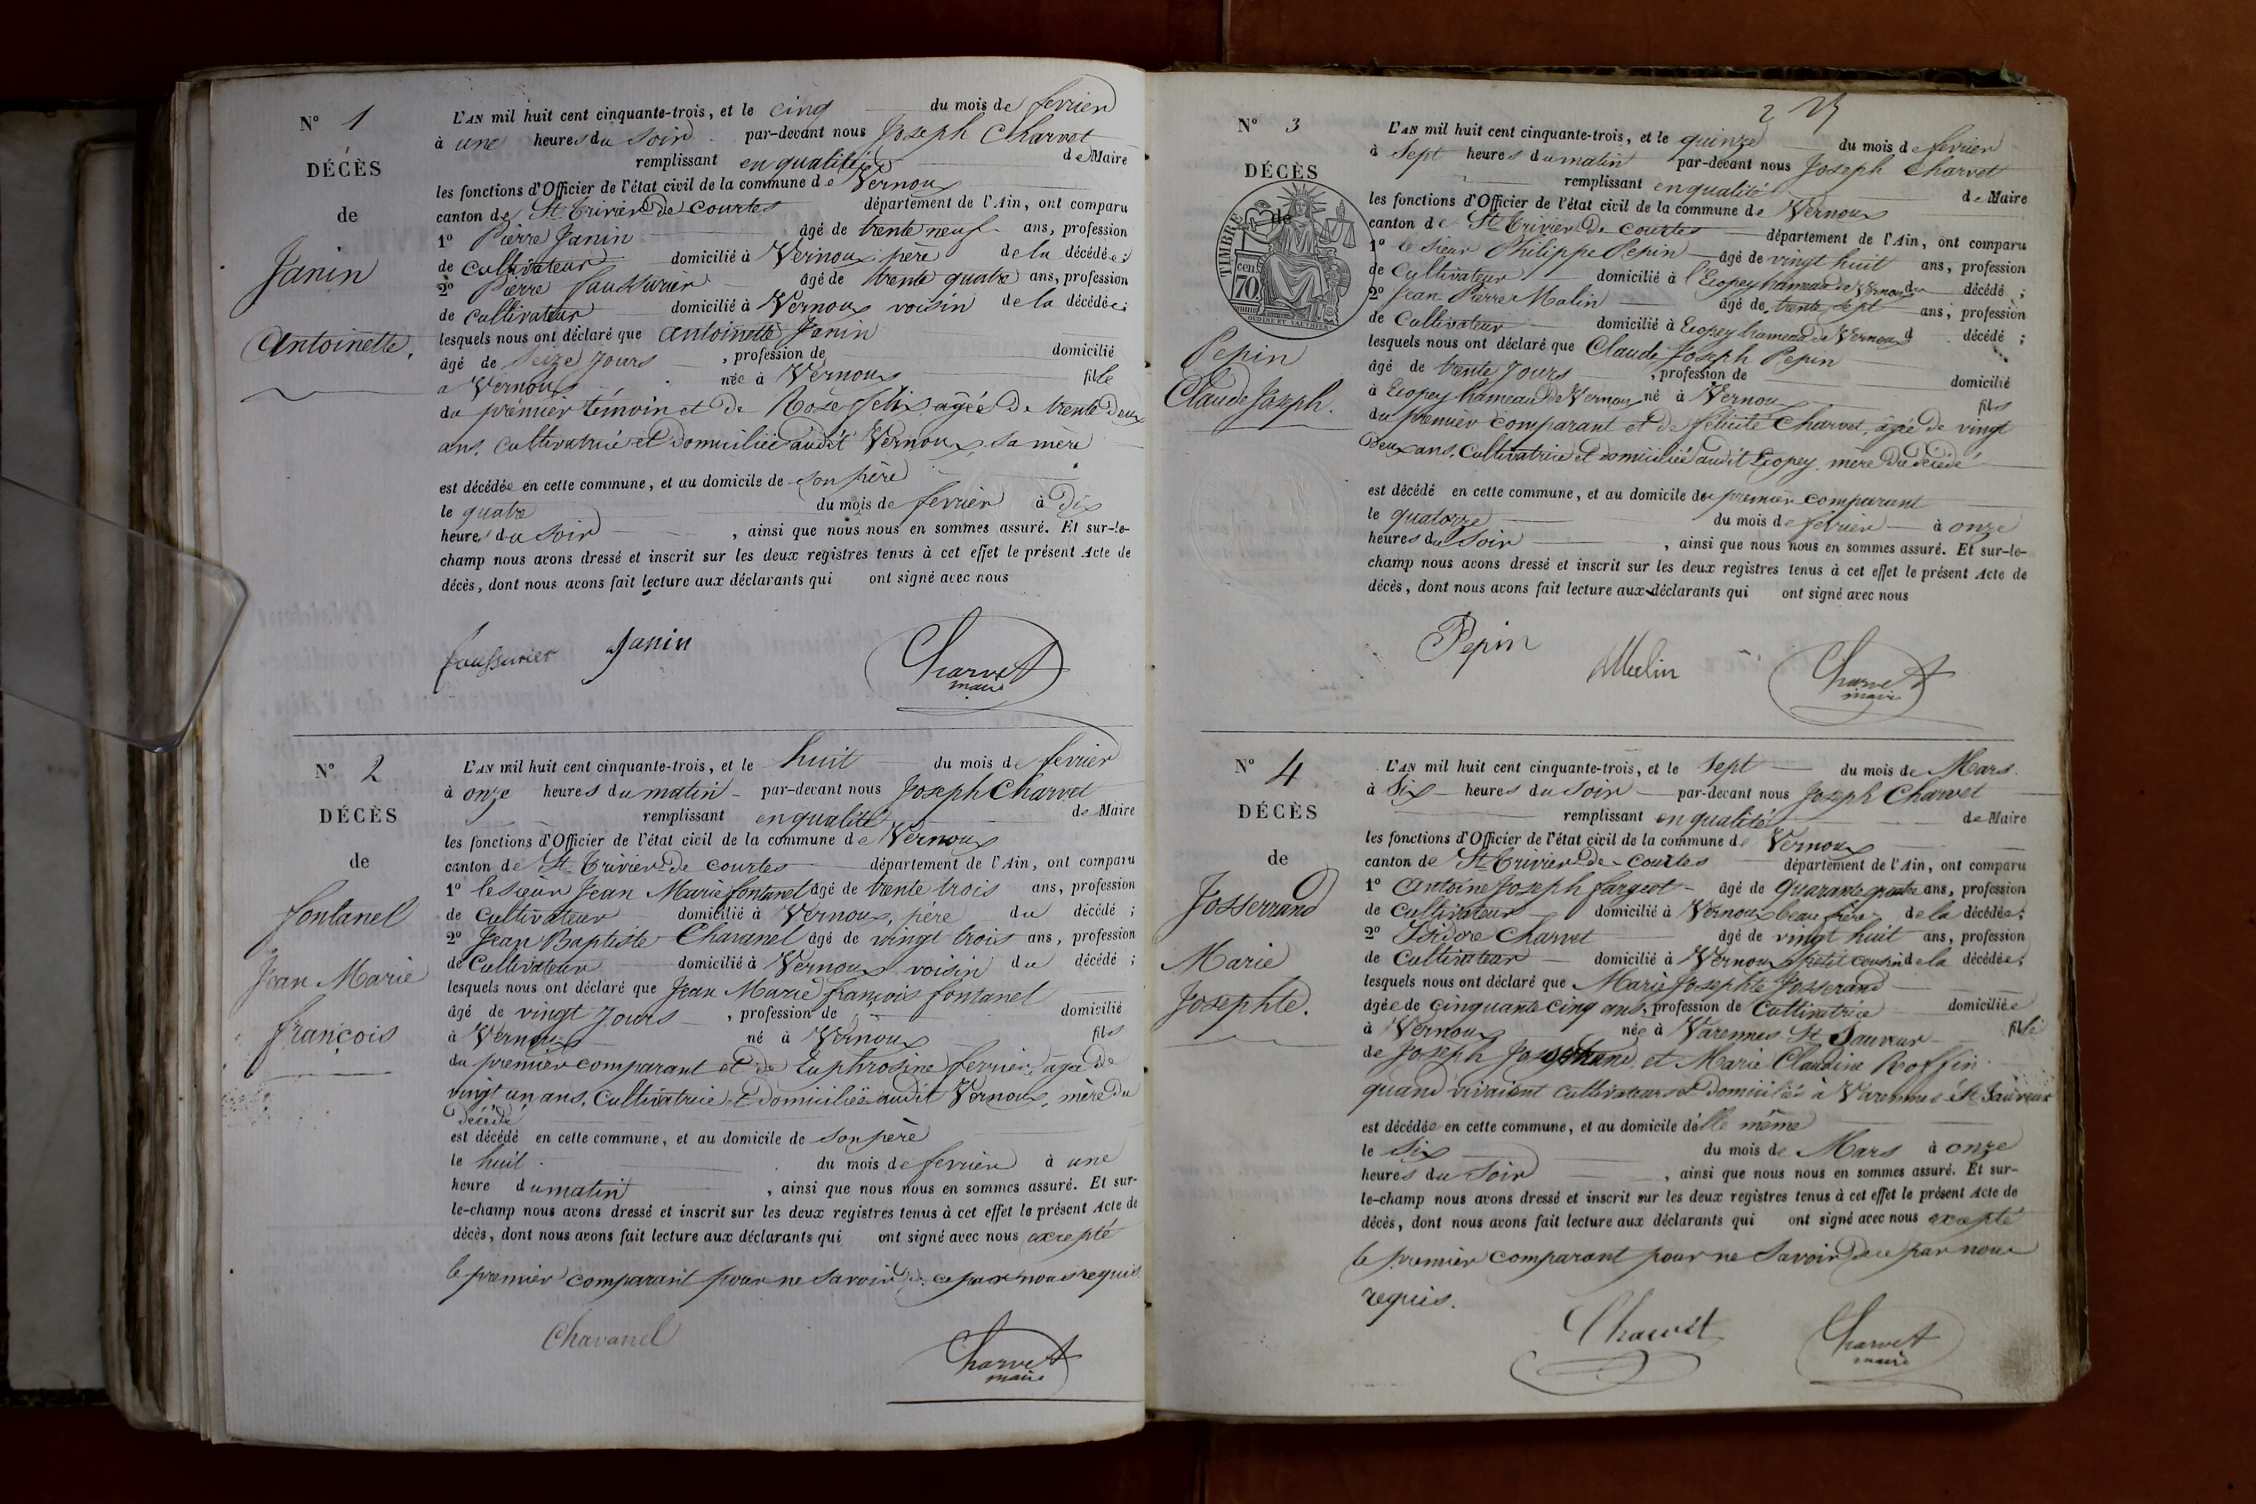 N° 1
DÉCÈS
de
Janin
Antoinette.
L'AN mil huit cent cinquante-trois, et le cinq du mois de fevrier
à une heures du soir par-devant nous Joseph Charvet
remplissant en qualité de Maire
les fonctions d'Officier de l'état civil de la commune de Vernoux
canton de St Trivier De courtes département de l'Ain, ont comparu
1° Pierre Janin âgé de trente neuf ans, profession
de cultivateur domicilié à Vernoux père de la décédée;
2° Pierre faussurier âgé de trente quatre ans, profession
de cultivateur domicilié à Vernoux voisin de la décédée;
lesquels nous ont déclaré que antoinette Janin
âgé de Seize Jours , profession de domicilié
a Vernoux née à Vernoux fille
du premier témoin et De Rose felix agée De trente Deux
ans. cultivatrice et Domiciliée audit Vernoux, sa mère
est décédée en cette commune, et au domicile de son père
le quatre du mois de fevrier à Dix
heures du soir , ainsi que nous nous en sommes assuré. Et sur-le-
champ nous avons dressé et inscrit sur les deux registres tenus à cet effet le présent Acte de
décès, dont nous avons fait lecture aux déclarants qui ont signé avec nous
faussurier Janin Charvet
maire
N° 2
DÉCÈS
de
fontanel
Jean Marie
françois
L'AN mil huit cent cinquante-trois, et le huit du mois de fevrier
à onze heures du matin par-devant nous Joseph Charvet
remplissant en qualité de Maire
les fonctions d'Officier de l'état civil de la commune de Vernoux
canton de St Trivier De courtes département de l'Ain, ont comparu
1° le sieur Jean Marie fontanel âgé de trente trois ans, profession
de cultivateur domicilié à Vernoux, père du décédé ;
2° Jean Baptiste Chavanel âgé de vingt trois ans, profession
de Cultivateur domicilié à Vernoux voisin du décédé ;
lesquels nous ont déclaré que Jean Marie françois fontanel
âgé de vingt Jours , profession de domicilié
à Vernoux né à Vernoux fils
du premier comparant et de Euphrosine ferrier, agée De
vingt un ans. Cultivatrice et Domiciliée audit Vernoux, mère Du
Décédé
est décédé en cette commune, et au domicile de son père
le huit du mois de fevrier à une
heure du matin , ainsi que nous nous en sommes assuré. Et sur-
le-champ nous avons dressé et inscrit sur les deux registres tenus à cet effet le présent Acte de
décès, dont nous avons fait lecture aux déclarants qui ont signé avec nous excepté
le premier comparant pour ne savoir de ce par nous requis
Chavanel Charvet
maire
2
N° 3
DÉCÈS
de
TIMBRE
70 cen
Pepin
Claude Joseph.
L'AN mil huit cent cinquante-trois, et le quinze du mois de fevrier
à Sept heures du matin par-devant nous Joseph Charvet
remplissant en qualité de Maire
les fonctions d'Officier de l'état civil de la commune de Vernoux
canton de St Trivier De courtes département de l'Ain, ont comparu
1° le sieur Philippe Pepin âgé de vingt huit ans, profession
de Cultivateur domicilié à l'Ecopey hameau de Vernoux du décédé ;
2° Jean Pierre Malin âgé de trente sept ans, profession
de Cultivateur domicilié à Ecopey hameau de Vernoux d décédé ;
lesquels nous ont déclaré que Claude Joseph Pepin
âgé de trente Jours , profession de domicilié
à Ecopey hameau De Vernoux né à Vernoux fils
du premier comparant et de félicité Charvet, agée De vingt
Deux ans. Cultivatrice et domiciliée audit Ecopey, mère Du Décédé
est décédé en cette commune, et au domicile du premier comparant
le quatorze du mois de fevrier à onze
heures du Soir , ainsi que nous nous en sommes assuré. Et sur-le-
champ nous avons dressé et inscrit sur les deux registres tenus à cet effet le présent Acte de
décès, dont nous avons fait lecture aux déclarants qui ont signé avec nous
Pepin Charvet
maire
N° 4
DÉCÈS
de
Josserrand
Marie
Josephte.
L'AN mil huit cent cinquante-trois, et le Sept du mois de Mars
à Six heures du soir par-devant nous Joseph Charvet
remplissant en qualité de Maire
les fonctions d'Officier de l'état civil de la commune de Vernoux
canton de St Trivier De courtes département de l'Ain, ont comparu
1° Antoine Joseph fargeot âgé de quarante quatre ans, profession
de cultivateur domicilié à Vernoux beau frère de la décédée;
2° Isidore Charvet âgé de vingt huit ans, profession
de Cultivateur domicilié à Vernoux petit cousin de la décédée;
lesquels nous ont déclaré que Marie Josephte Josserand
âgée de cinquante cinq ans, profession de Cultivatrice domiciliée
à Vernoux née à Varennes St Sauveur fille
de Joseph et Marie Claudine Roffin
quand vivaient cultivateurs et Domiciliés à Varennes St Sauveur
est décédée en cette commune, et au domicile d'elle même
le Six du mois de Mars à onze
heures du Soir , ainsi que nous nous en sommes assuré. Et sur-
le-champ nous avons dressé et inscrit sur les deux registres tenus à cet effet le présent Acte de
décès, dont nous avons fait lecture aux déclarants qui ont signé avec nous excepté
le premier comparant pour ne savoir de ce par nous
requis.
Charvet Charvet
maire